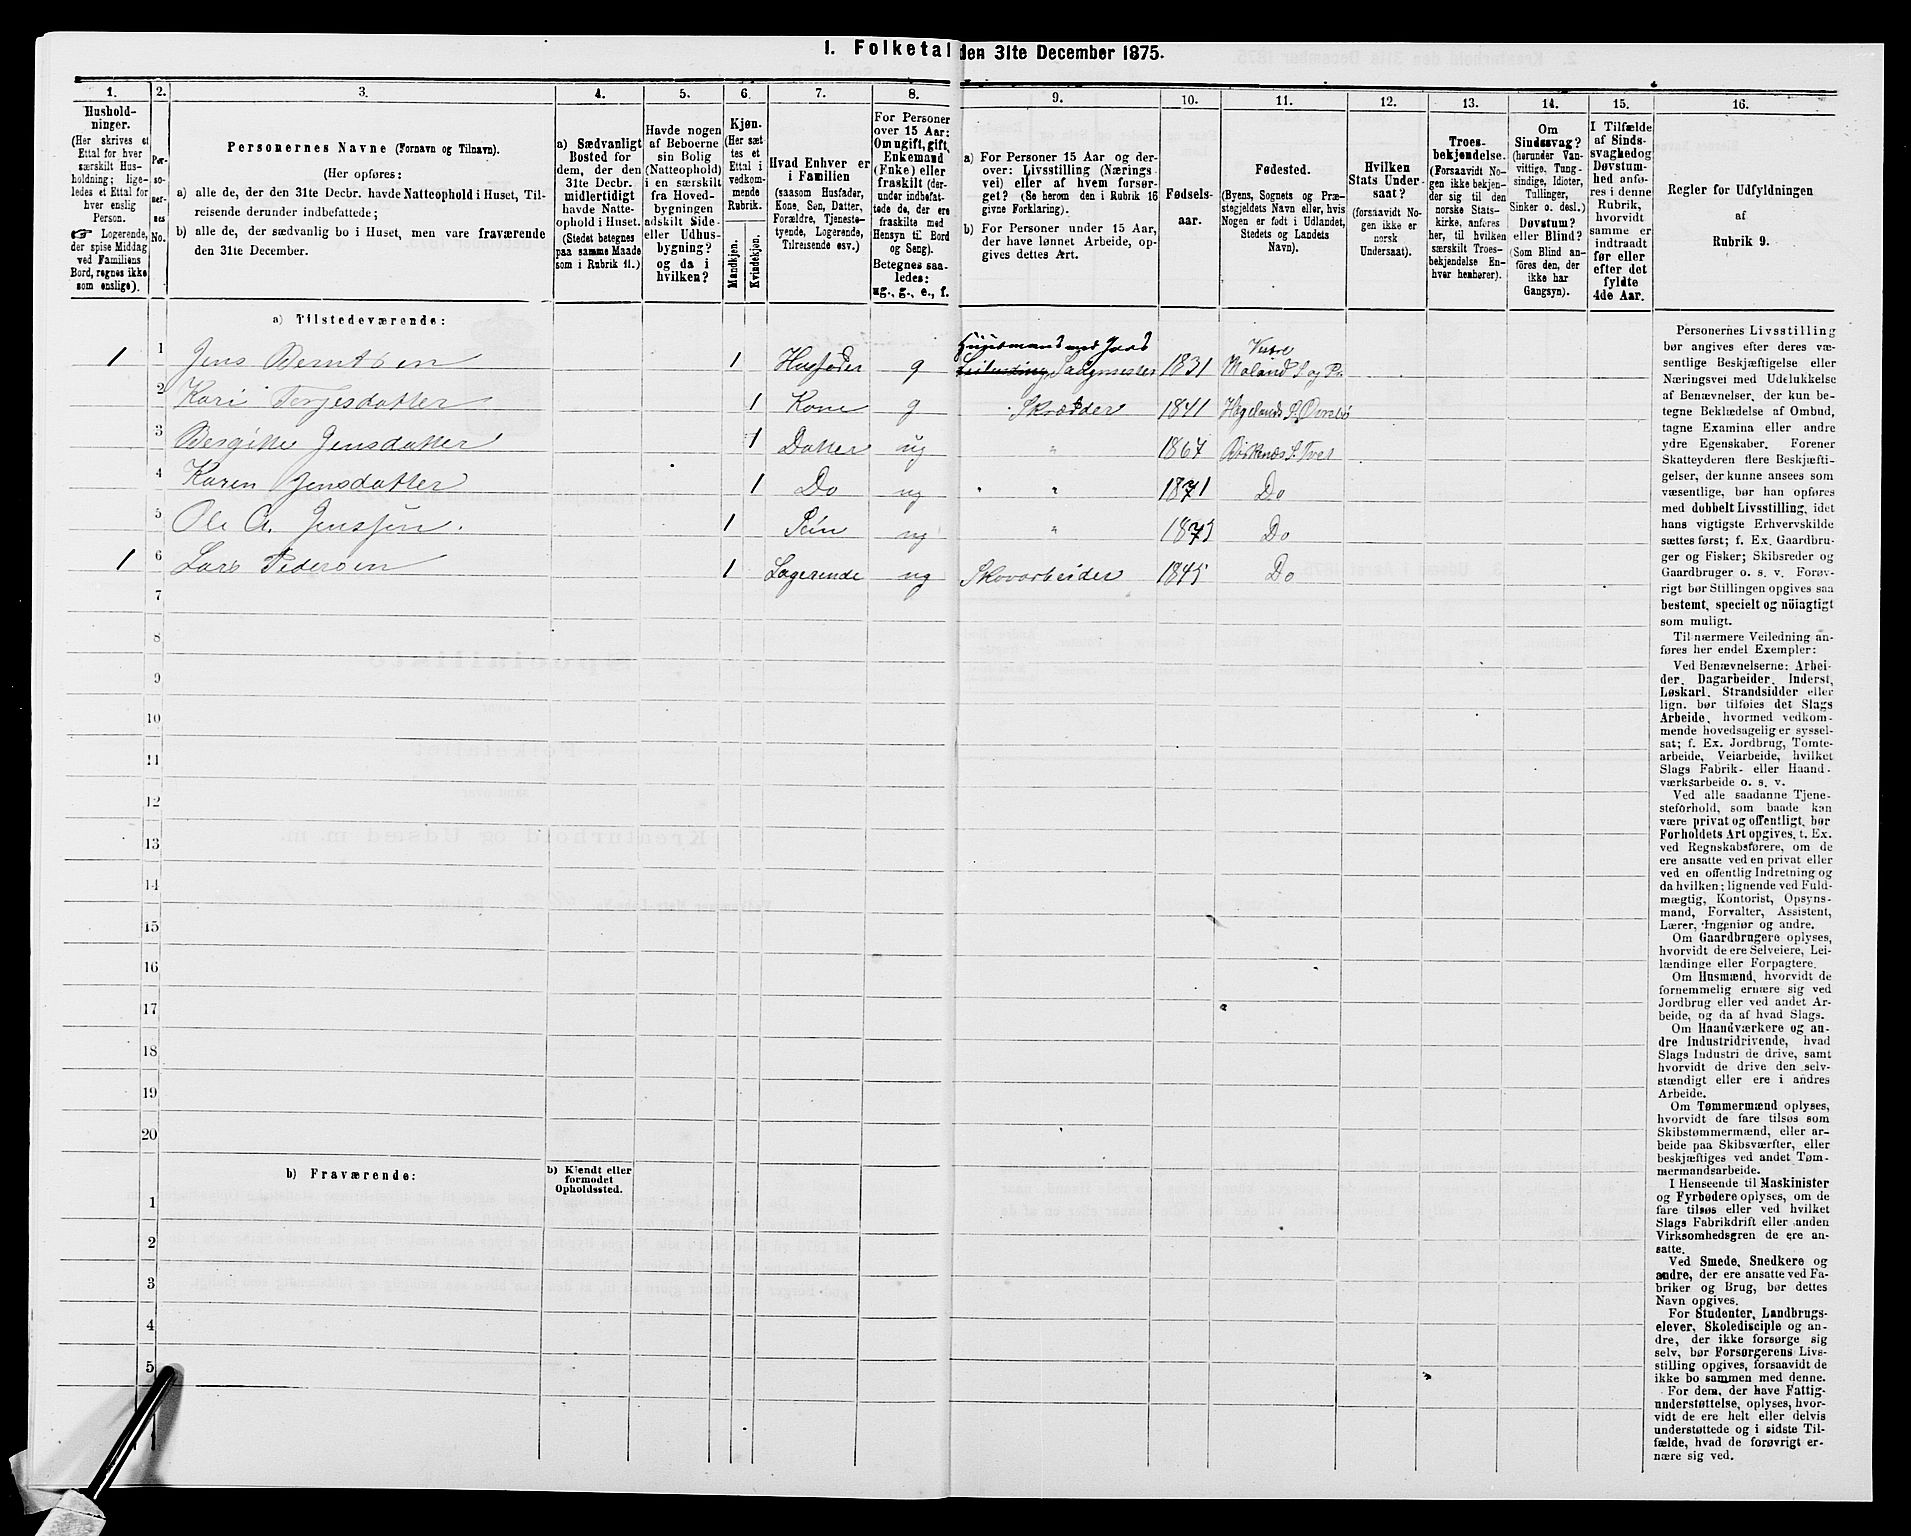 1. Folketal den 31te December 1875.
1. 2. 3. 4. 5. 6. 7. 8. 9. 10. 11. 12. 13. 14. 15. 16.
Hushold-
ninger.
(Her skrives et
Ettal for hver
særskilt Hus-
holdning; lige-
ledes et Ettal for
hver enslig
Person.
☞ Logerende,
der spise Middag
ved Familiens
Bord, regnes ikke
som enslige).
Per-
so-
ner-
nes
No.
Personernes Navne (Fornavn og Tilnavn).
(Her opføres:
a) alle de, der den 31te Decbr. havde Natteophold i Huset, Til-
reisende derunder indbefattede;
b) alle de, der sædvanlig bo i Huset, men vare fraværende
den 31te December.
a) Sædvanligt
Bosted for
dem, der den
31te Decbr.
midlertidigt
havde Natte-
ophold i Huset.
(Stedet betegnes
paa samme Maade
som i Rubrik 11.)
Havde nogen
af Beboerne
sin Bolig
(Natteophold)
i en særskilt
fra Hoved-
bygningen
adskilt Side-
eller Udhus-
bygning?
og da i
hvilken?
Kjøn.
(Her sæt
tes et
Ettal i
vedkom-
mende
Rubrik.
Mandkjøn.
Kvindekjøn.
Hvad Enhver er
i Familien
(saasom Husfader,
Kone, Søn, Datter,
Forældre, Tjeneste-
tyende, Logerende,
Tilreisende osv.)
For Personer
over 15 Aar:
Om ugift, gift,
Enkemand
(Enke) eller
fraskilt (der-
under indbefat-
tede de, der ere
fraskilte med
Hensyn til Bord
og Seng).
Betegnes saa-
ledes:
ug., g., e., f.
a) For Personer 15 Aar og der-
over: Livsstilling (Nærings-
vei) eller af hvem forsør-
get? (Se herom den i Rubrik 16
givne Forklaring).
b) For Personer under 15 Aar,
der have lønnet Arbeide, op-
gives dettes Art.
Fødsels-
aar.
Fødested.
(Byens, Sognets og Præ-
stegjeldets Navn eller, hvis
Nogen er født i Udlandet,
Stedets og Landets
Navn).
Hvilken
Stats Under-
saat?
(forsaavidt No-
gen ikke er
norsk
Undersaat).
Troes-
bekjendelse.
(Forsaavidt No-
gen ikke bekjen-
der sig til den
norske Stats-
kirke, anføres
her, til hvilken
særskilt Troes-
bekjendelse En-
hver henhører).
Om
Sindssvag?
(herunder Van-
vittige, Tung-
sindige, Idioter,
Tullinger,
Sinker o. desl.)
Døvstum?
eller Blind?
(Som Blind an-
føres den, der
ikke har
Gangsyn).
I Tilfælde
af Sinds-
svaghed og
Døvstum-
hed anfø-
res i denne
Rubrik,
hvorvidt
samme er
indtraadt
før eller
efter det
fyldte
4de Aar.
Regler for Udfyldningen
af
Rubrik 9.
a) Tilstedeværende:
1 1 Jens Berntsen 1 Husfader g Huusmand med Jord Leilending Saugmester 1831 Vestre Moland S og Pr
2 Kari Terjesdatter 1 Kone g Skrædder 1841 Hægelands S.
3 Bergitte Jensdatter 1 Datter ug " 1867 Birkenæs S. Tvet
4 Karen Jensdatter 1 Do ug " " 1871 Do
5 Ole A. Jenssøn. 1 Søn ug " 1873 Do
1 6 Lars Pedersen 1 Logerende ug Skovarbeider 1845 Do
7
8
9
10
11
12
13
14
15
16
17
18
19
20
b) Fraværende:
b) Kjendt eller
formodet
Opholdssted.
1
2
3
4
5
Personernes Livsstilling
bør angives efter deres væ-
sentlige Beskjæftigelse eller
Næringsvei med Udelukkelse
af Benævnelser, der kun be-
tegne Beklædelse af Ombud,
tagne Examina eller andre
ydre Egenskaber. Forener
Skatteyderen flere Beskjæfti-
gelser, der kunne ansees som
væsentlige, bør han opføres
med dobbelt Livsstilling, idet
hans vigtigste Erhvervskilde
sættes først; f. Ex. Gaardbru-
ger og Fisker; Skibsreder og
Gaardbruger o. s. v. Forøv-
rigt bør Stillingen opgives saa
bestemt, specielt og nöiagtigt
som muligt.
Til nærmere Veiledning an-
føres her endel Exempler:
Ved Benævnelserne: Arbei-
der, Dagarbeider, Inderst,
Løskarl, Strandsidder eller
lign. bør tilføies det Slags
Arbeide, hvormed vedkom-
mende hovedsagelig er syssel-
sat; f. Ex. Jordbrug, Tomte-
arbeide, Veiarbeide, hvilket
Slags Fabrik- eller Haand-
værksarbeide o. s. v.
Ved alle saadanne Tjene-
steforhold, som baade kan
være privat og offentligt, bør
Forholdets Art opgives, t. Ex.
ved Regnskabsførere, om de
ere ansatte ved en privat eller
ved en offentlig Indretning og
da hvilken; lignende ved Fuld-
mægtig, Kontorist, Opsyns-
mand, Forvalter, Assistent,
Lærer, Ingeniør og andre.
Om Gaardbrugere oplyses,
hvorvidt de ere Selveiere, Lei-
lændinge eller Forpagtere.
Om Husmænd, hvorvidt de
fornemmelig ernære sig ved
Jordbrug eller ved andet Ar-
beide, og da af hvad Slags.
Om Haandværkere og an-
dre Industridrivende, hvad
Slags Industri de drive, samt
hvorvidt de drive den selv-
stændigt eller ere i andres
Arbeide.
Om Tømmermænd oplyses,
hvorvidt de fare tilsøs som
Skibstømmermænd, eller ar-
beide paa Skibsværfter, eller
beskjæftiges ved andet Tøm-
mermandsarbeide.
I Henseende til Maskinister
og Fyrbødere oplyses, om de
fare tilsøs eller ved hvilket
Slags Fabrikdrift eller anden
Virksomhedsgren de ere an-
satte.
Ved Smede, Snedkere og
andre, der ere ansatte ved Fa-
briker og Brug, bør dettes
Navn opgives.
For Studenter, Landbrugs-
elever, Skoledisciple og an-
dre, der ikke forsørge sig
selv, bør Forsørgerens Livs-
stilling opgives, forsaavidt de
ikke bo sammen med denne.
For dem, der have Fattig-
understøttelse, oplyses, hvor-
vidt de ere helt eller delvis
understøttede og i sidste Til-
fælde, hvad de forøvrigt er-
nære sig ved.